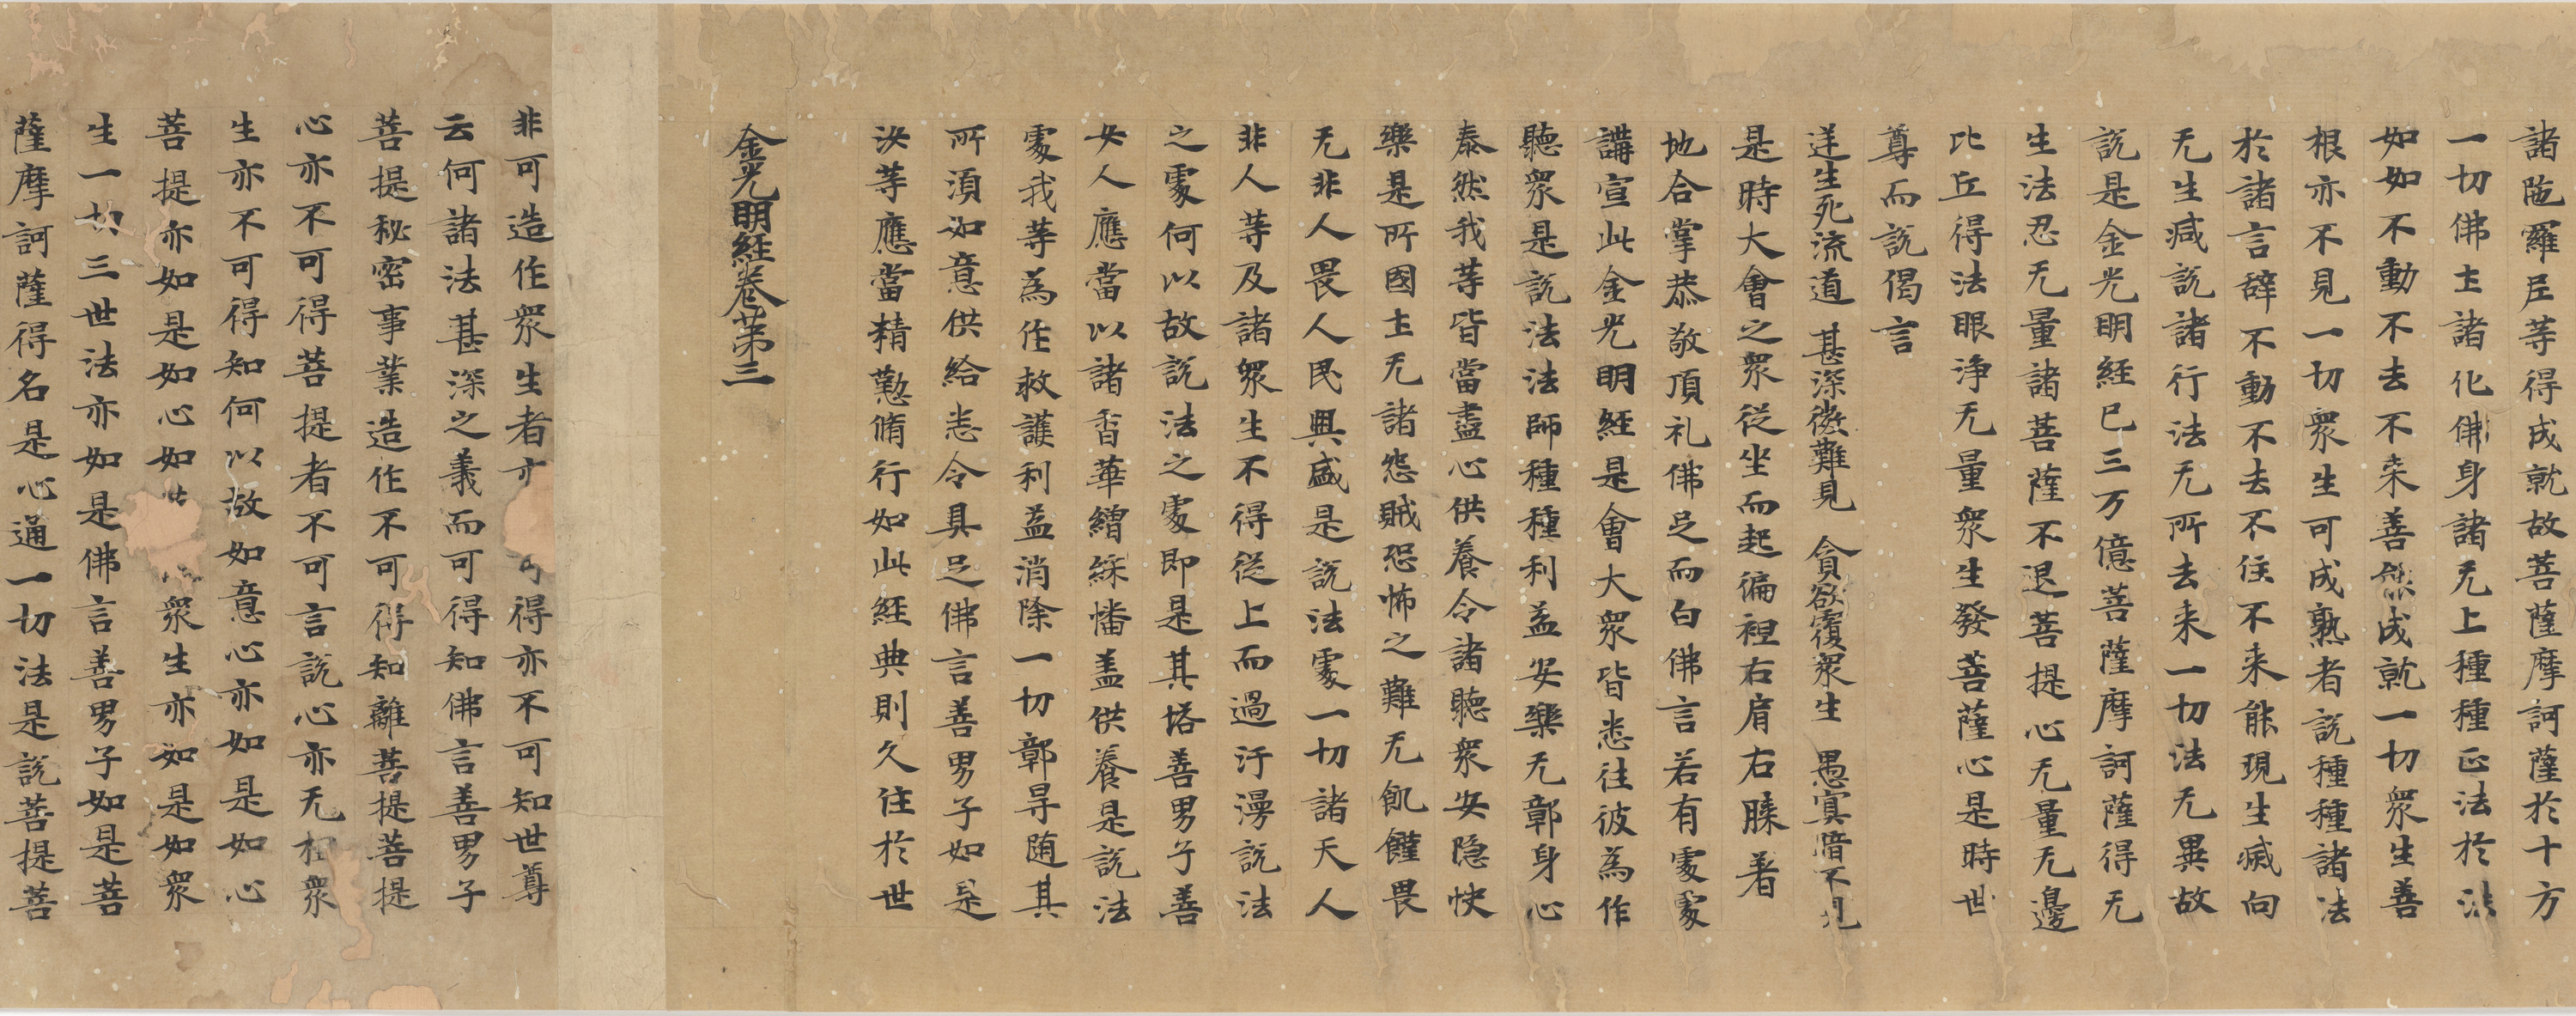 諸陁羅尼等得成就故菩薩摩訶薩於十方
一切佛土諸化佛身諸无上種種正法於法
如如不動不去不来善能成就一切衆生善
根亦不見一切衆生可成熟者說種種諸法
於諸言辭不動不去不住不来能現生滅向
无生滅說諸行法无所去来一切法无異故
說是金光明經已三万億菩薩摩訶薩得无
生法忍无量諸菩薩不退菩提心无量无邊
比丘得法眼淨无量衆生發菩薩心是時世
尊而說偈言
逆生死流道 甚深微難見 貪欲覆衆生 愚冥暗不見
是時大會之衆從坐而起徧袒右肩右膝著
地合掌恭敬頂礼佛足而白佛言若有處處
講宣此金光明經是會大衆皆悉往彼為作
聽衆是說法法師種種利益安樂无鄣身心
泰然我等皆當盡心供養令諸聽衆安隱快
樂是所國土无諸怨賊恐怖之難无飢饉畏
无非人畏人民興盛是說法處一切諸天人
非人等及諸衆生不得從上而過汙漫說法
之處何以故說法之處即是其塔善男子善
女人應當以諸香華繒綵幡蓋供養是說法
處我等為作救護利益消除一切鄣㝵随其
所須如意供給悉令具足佛言善男子如是
汝等應當精懃脩行如此經典則久住於世
金光明經卷第三
非可造作衆生者亦 可得亦不可知世尊
云何諸法甚深之義而可得知佛言善男子
菩提秘密事業造作不可得知離菩提菩提
心亦不可得菩提者不可言說心亦无相衆
生亦不可得知何以故如意心亦如是如心
菩提亦如是如心如 衆生亦如是如衆
生一切三世法亦如是佛言善男子如是菩
薩摩訶薩得名是心通一切法是說菩提菩